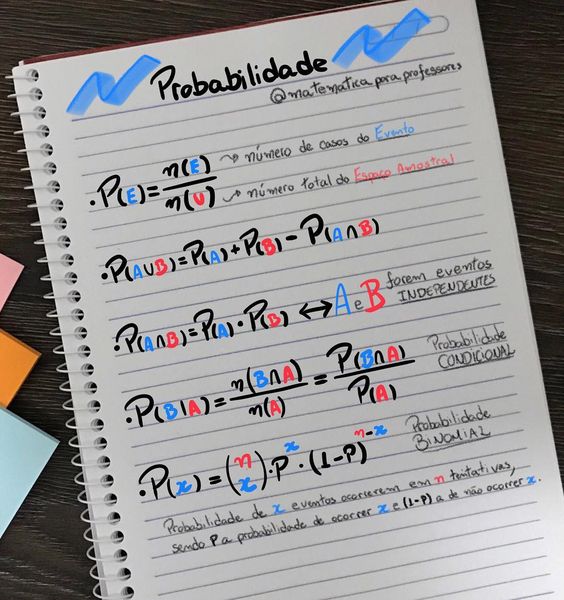 Probabilidade
@matematica para professores
• P(E) = n(E)/n(U) → número de casos do Evento
→ número total do Espaço Amostral
• P(A∪B) = P(A) + P(B) - P(A∩B)
• P(A∩B) = P(A) · P(B) ↔ A e B forem eventos INDEPENDENTES
• P(B|A) = n(B∩A)/n(A) = P(B∩A)/P(A) Probabilidade CONDICIONAL
• P(x) = (n x) · P^x · (1-P)^n-x Probabilidade BINOMIAL
Probabilidade de x eventos ocorrerem em n tentativas,
sendo P a probabilidade de ocorrer x e (1-P) a de não ocorrer x.